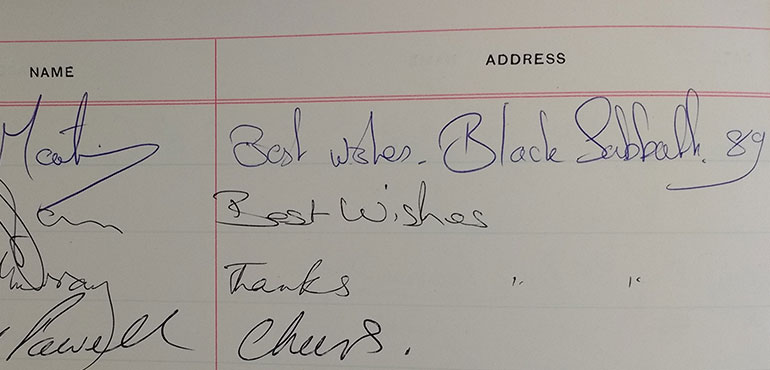 NAME ADDRESS
Martin Best wishes. Black Sabbath. 89
Best Wishes
Murray Thanks " "
Powell Cheers.